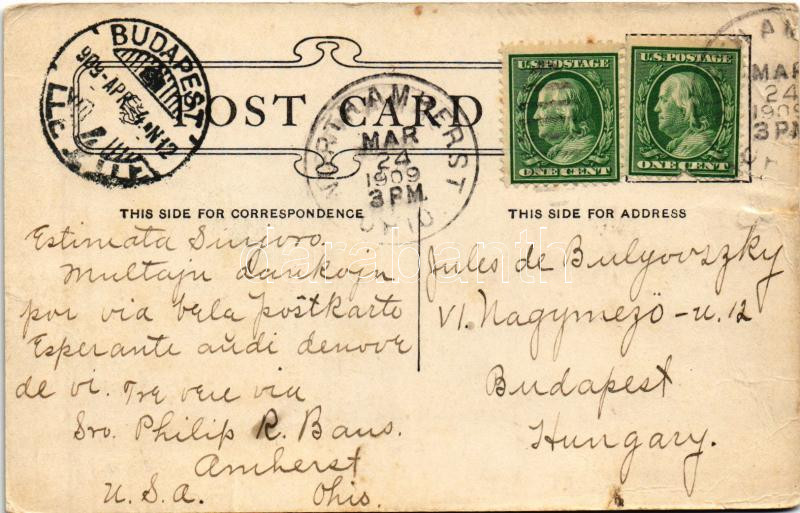 BUDAPEST
909 APR 4 N12
POST CARD
NORTH AMHERST
MAR
24
1909
3 PM
OHIO
U.S. POSTAGE
ONE CENT
U.S. POSTAGE
ONE CENT
AM
MAR
24
1909
3 PM
THIS SIDE FOR CORRESPONDENCE
THIS SIDE FOR ADDRESS
Estimata Sinjoro.
Multajn dankojn
por via bela poŝtkarto
Esperante audi denove
de vi. Tre vere via
Sro. Philip R. Baus.
Amherst
U.S.A. Ohio.
Jules de Bulyovszky
VI. Nagymezö-u. 12
Budapest
Hungary.
darabanth